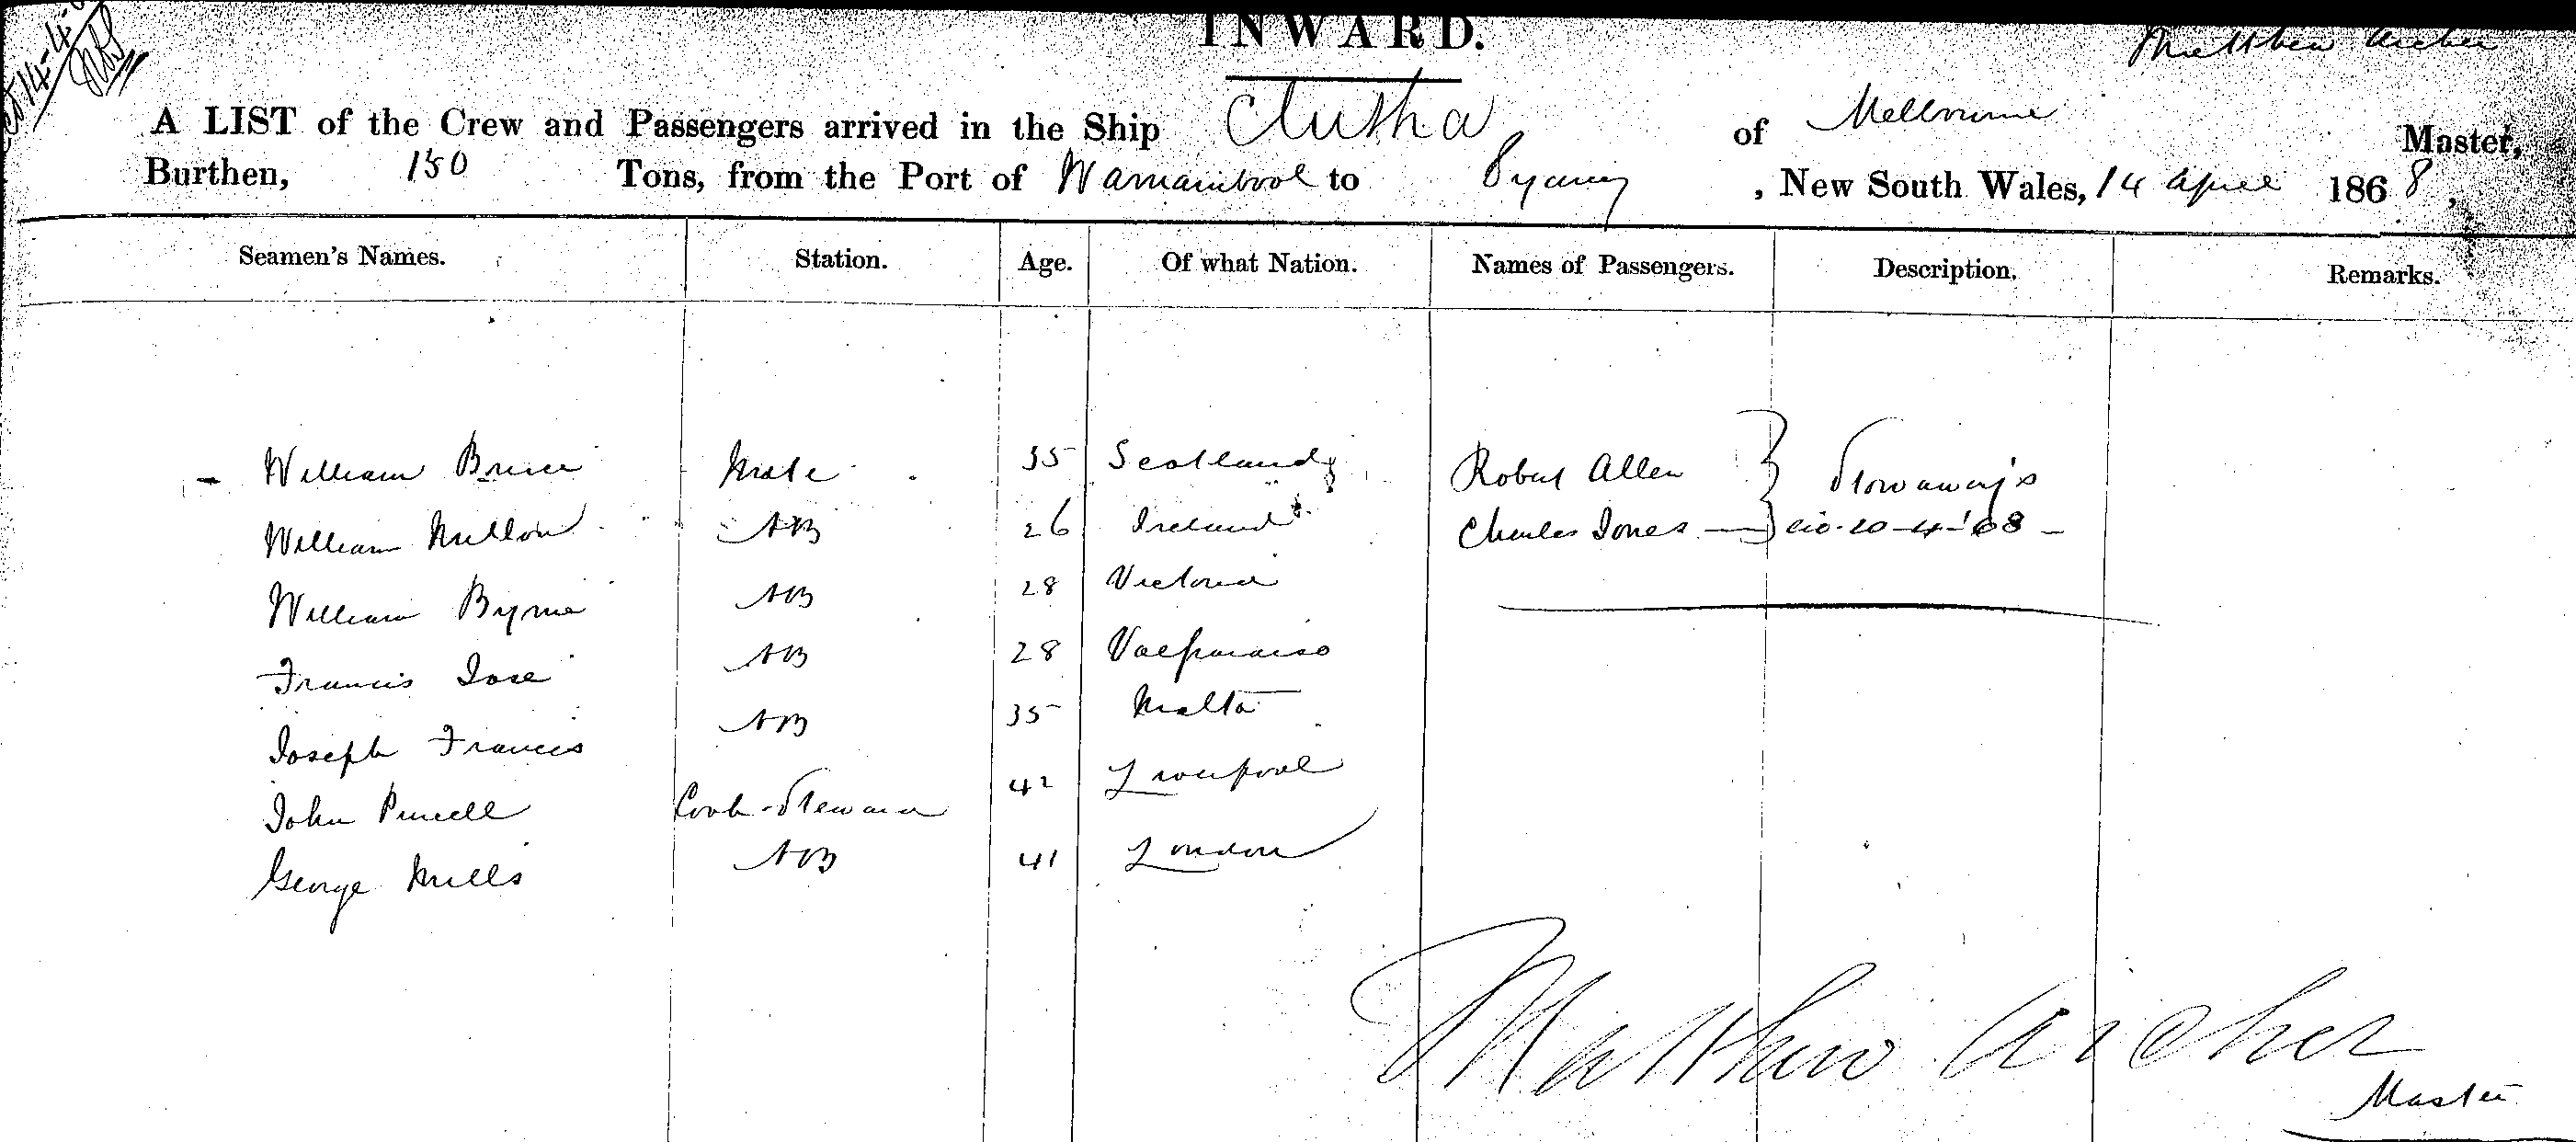 INWARD.
Matthew Archer
A LIST of the Crew and Passengers arrived in the Ship Clutha of Melbourne Master,
Burthen, 150 Tons, from the Port of Warnambool to Sydney, New South Wales, 14 April 1868,
Seamen's Names. Station. Age. Of what Nation. Names of Passengers. Description. Remarks.
William Bruce Mate 35 Scotland Robert Allen Stowaway's
William Mellon AB 26 Ireland Charles Jones 20-4-'68
William Byrne AB 28 Victoria
Francis Jose AB 28 Valparaiso
Joseph Francis AB 35 Malta
John Purcell Cook-Steward 42 Liverpool
George Mills AB 41 London
Matthew Archer
Master